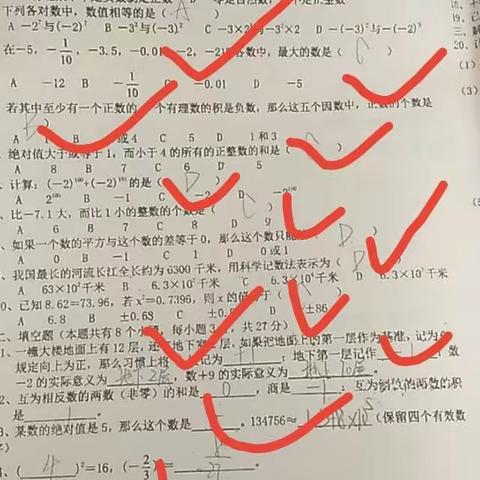 下列各对数中，数值相等的是（ A ）
A －2⁷与(－2)⁷ B －3²与(－3)² C －3×2³与－3²×2 D －(－3)²与－(－2)³
在－5，－1/10，－3.5，－0.0，－2，－2各数中，最大的是（ C ）
A －12 B －1/10 C －0.01 D －5
若其中至少有一个正数的 个有理数的积是负数，那么这五个因数中，正数的个数是
A 1 B 或4 C 5 D 1和3
绝对值大于或等于1，而小于4的所有的正整数的和是（ ）
A 8 B 7 C 6 D 5
计算：(－2)¹⁰⁰＋(－2)¹⁰¹的是（ D ）
A 2¹⁰⁰ B －1 C －2 D －2¹⁰⁰
比－7.1大，而比1小的整数的个数是（ C ）
A 6 B 7 C 8 D 9
如果一个数的平方与这个数的差等于0，那么这个数只能 D ）
A 0 B －1 C 1 D 0或1
我国最长的河流长江全长约为6300千米，用科学记数法表示为（ D ）
A 63×10²千米 B 6.3×10²千米 C 6.3×10⁴千米 D 6.3×10³千米
0、已知8.62²=73.96，若x²=0.7396，则x的值等于（
A 6.8 B ±0.68 C ±0.8 D ±86
二、填空题（本题共有8个小题，每小题 ，共27分）
1、一幢大楼地面上有12层，还有地下室 层，如果把地面上的第一层作为基准，记为0，
规定向上为正，那么习惯上将 记为 ＋1 ；地下第一层记作 ；数
－2的实际意义为 地下2层 ，数＋9的实际意义为 地上10层 。
2、互为相反数的两数（非零）的和是 0 ，商是 －1 ；互为倒数的两数的积
是 1 。
3、某数的绝对值是5，那么这个数是 。134756≈ 1.348×10⁵ （保留四个有效数
字）
4、（ 4 ）²=16，(－2/3)³= －8/27 。